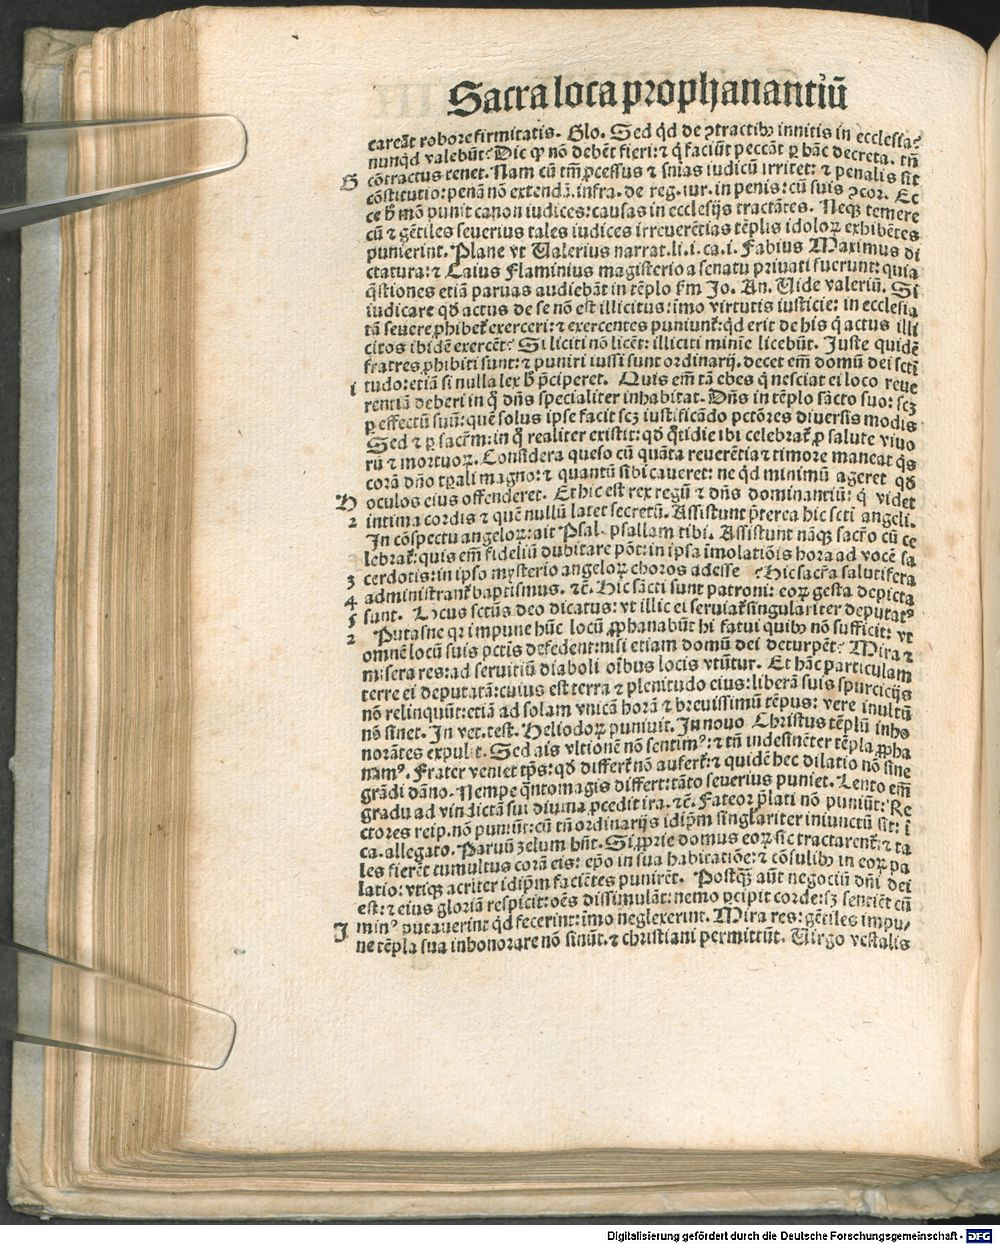 Sacra loca prophanantiū
careāt robore firmitatis. Glo. Sed qͥd de ꝯtractibꝫ innitis in ecclesia?
nunqͥd valebūt? Dic ꝙ nō debēt fieri: ⁊ q̇ faciūt peccāt ꝑ hāc decreta. tn̄
G cōtractus tenet. Nam cū tm̄ ꝓcessus ⁊ sn̄ias iudicū irritet: ⁊ penalis sit
cōstitutio: penā nō extendā. infra. de reg. iur. in penis: cū suis ꝯcor. Ec
ce hͦ mō punit canon iudices: causas in ecclesijs tractātes. Neqꝫ temere
cū ⁊ gētiles seuerius tales iudices irreuerētias tēplis idoloꝝ exhibētes
punierint. Plane vt Ualerius narrat. li. i. ca. i. Fabius Maximus di
ctatura: ⁊ Caius Flaminius magisterio a senatu priuati fuerunt: quia
q̄stiones etiā paruas audiebāt in tēplo fm̄ Jo. An. Uide valeriū. Si
iudicare qḋ actus de se nō est illicitus: imo virtutis iusticie: in ecclesia
tā seuere ꝓhibet̄ exerceri: ⁊ exercentes puniunt̄: qͥd erit de his q̇ actus illi
citos ibidē exercēt? Si liciti nō licēt: illiciti minīe licebūt. Juste quidē
fratres ꝓhibiti sunt: ⁊ puniri iussi sunt ordinarij. decet em̄ domū dei scti
i tudo: etiā si nulla lex hͦ p̄ciperet. Quis em̄ tā ebes q̇ nesciat ei loco reue
rentiā deberi in q̇ dn̄s specialiter inhabitat. Dn̄s in tēplo sācto suo: scꝫ
ꝑ effectū suū: quē solus ipse facit scꝫ iustificādo pctōres diuersis modis
Sed ⁊ ꝑ sacr̄m: in q̊ realiter existit: qḋ q̊tidie ibi celebrat̄ ꝓ salute viuo
rū ⁊ mortuoꝝ. Considera queso cū quāta reuerētia ⁊ timore maneat q̇s
corā dn̄o tꝑali magno: ⁊ quantū sibi caueret: ne qͥd minimū ageret qḋ
H oculos eius offenderet. Et hic est rex regū ⁊ dn̄s dominantiū: q̇ videt
2 intima cordis ⁊ quē nullū latet secretū. Assistunt p̄terea hic scti angeli.
In cōspectu angeloꝝ: ait Psal. psallam tibi. Assistunt nāqꝫ sacr̄o cū ce
lebrat̄: quis em̄ fideliū dubitare pōt: in ipsa imolatiōis hora ad vocē sa
3 cerdotis: in ipso mysterio angeloꝝ choros adesse ⁊ Hic sacr̄a salutifera
4 administrant̄ baptismus. ⁊c̄. Hic sācti sunt patroni: eoꝝ gesta depicta
5 sunt. Locus sctūs deo dicatus: vt illic ei seruiat̄ singulariter deputatꝰ
2 Putasne qꝛ impune hūc locū ꝓphanabūt hi fatui quibꝫ nō sufficit: vt
omnē locū suis pctis defedent: nisi etiam domū dei deturpēt? Mira ⁊
misera res: ad seruitiū diaboli oībus locis vtūtur. Et hāc particulam
terre ei deputatā: cuius est terra ⁊ plenitudo eius: liberā suis spurcicijs
nō relinquūt: etiā ad solam vnicā horā ⁊ breuissimū tēpus: vere inultū
nō sinet. In vet. test. Heliodoꝝ puniuit. In nouo Christus tēplū inho
norātes expulit. Sed ais vltionē nō sentimꝰ: ⁊ tn̄ indesinēter tēpla ꝓpha
namꝰ. Frater veniet tp̄s: qḋ differt̄ nō aufert̄: ⁊ quidē hec dilatio nō sine
grādi dāno. Nempe q̄ntomagis differt: tāto seuerius puniet. Lento em̄
gradu ad vindictā sui diuina ꝓcedit ira. ⁊c̄. Fateor p̄lati nō puniūt: Re
ctores reip. nō puniūt: cū tn̄ ordinarijs idip̄m singl̄ariter iniunctū sit: ī
ca. allegato. Paruū zelum hn̄t. Si ꝓprie domus eoꝝ sic tractarent̄: ⁊ ta
les fierēt tumultus corā eis: ep̄o in sua habitatiōe: ⁊ cōsulibꝫ in eoꝝ pa
latio: vtiqꝫ acriter idip̄m faciētes punirēt. Postq̄ꝫ aūt negociū dn̄i dei
est: ⁊ eius gloriā respicit: oēs dissimulāt: nemo ꝑcipit corde: sꝫ sentiēt cū
J minꝰ putauerint qͥd fecerint: īmo neglexerint. Mira res: gētiles impu/
ne tēpla sua inhonorare nō sinūt. ⁊ christiani permittūt. Uirgo vestalis
Digitalisierung gefördert durch die Deutsche Forschungsgemeinschaft - DFG